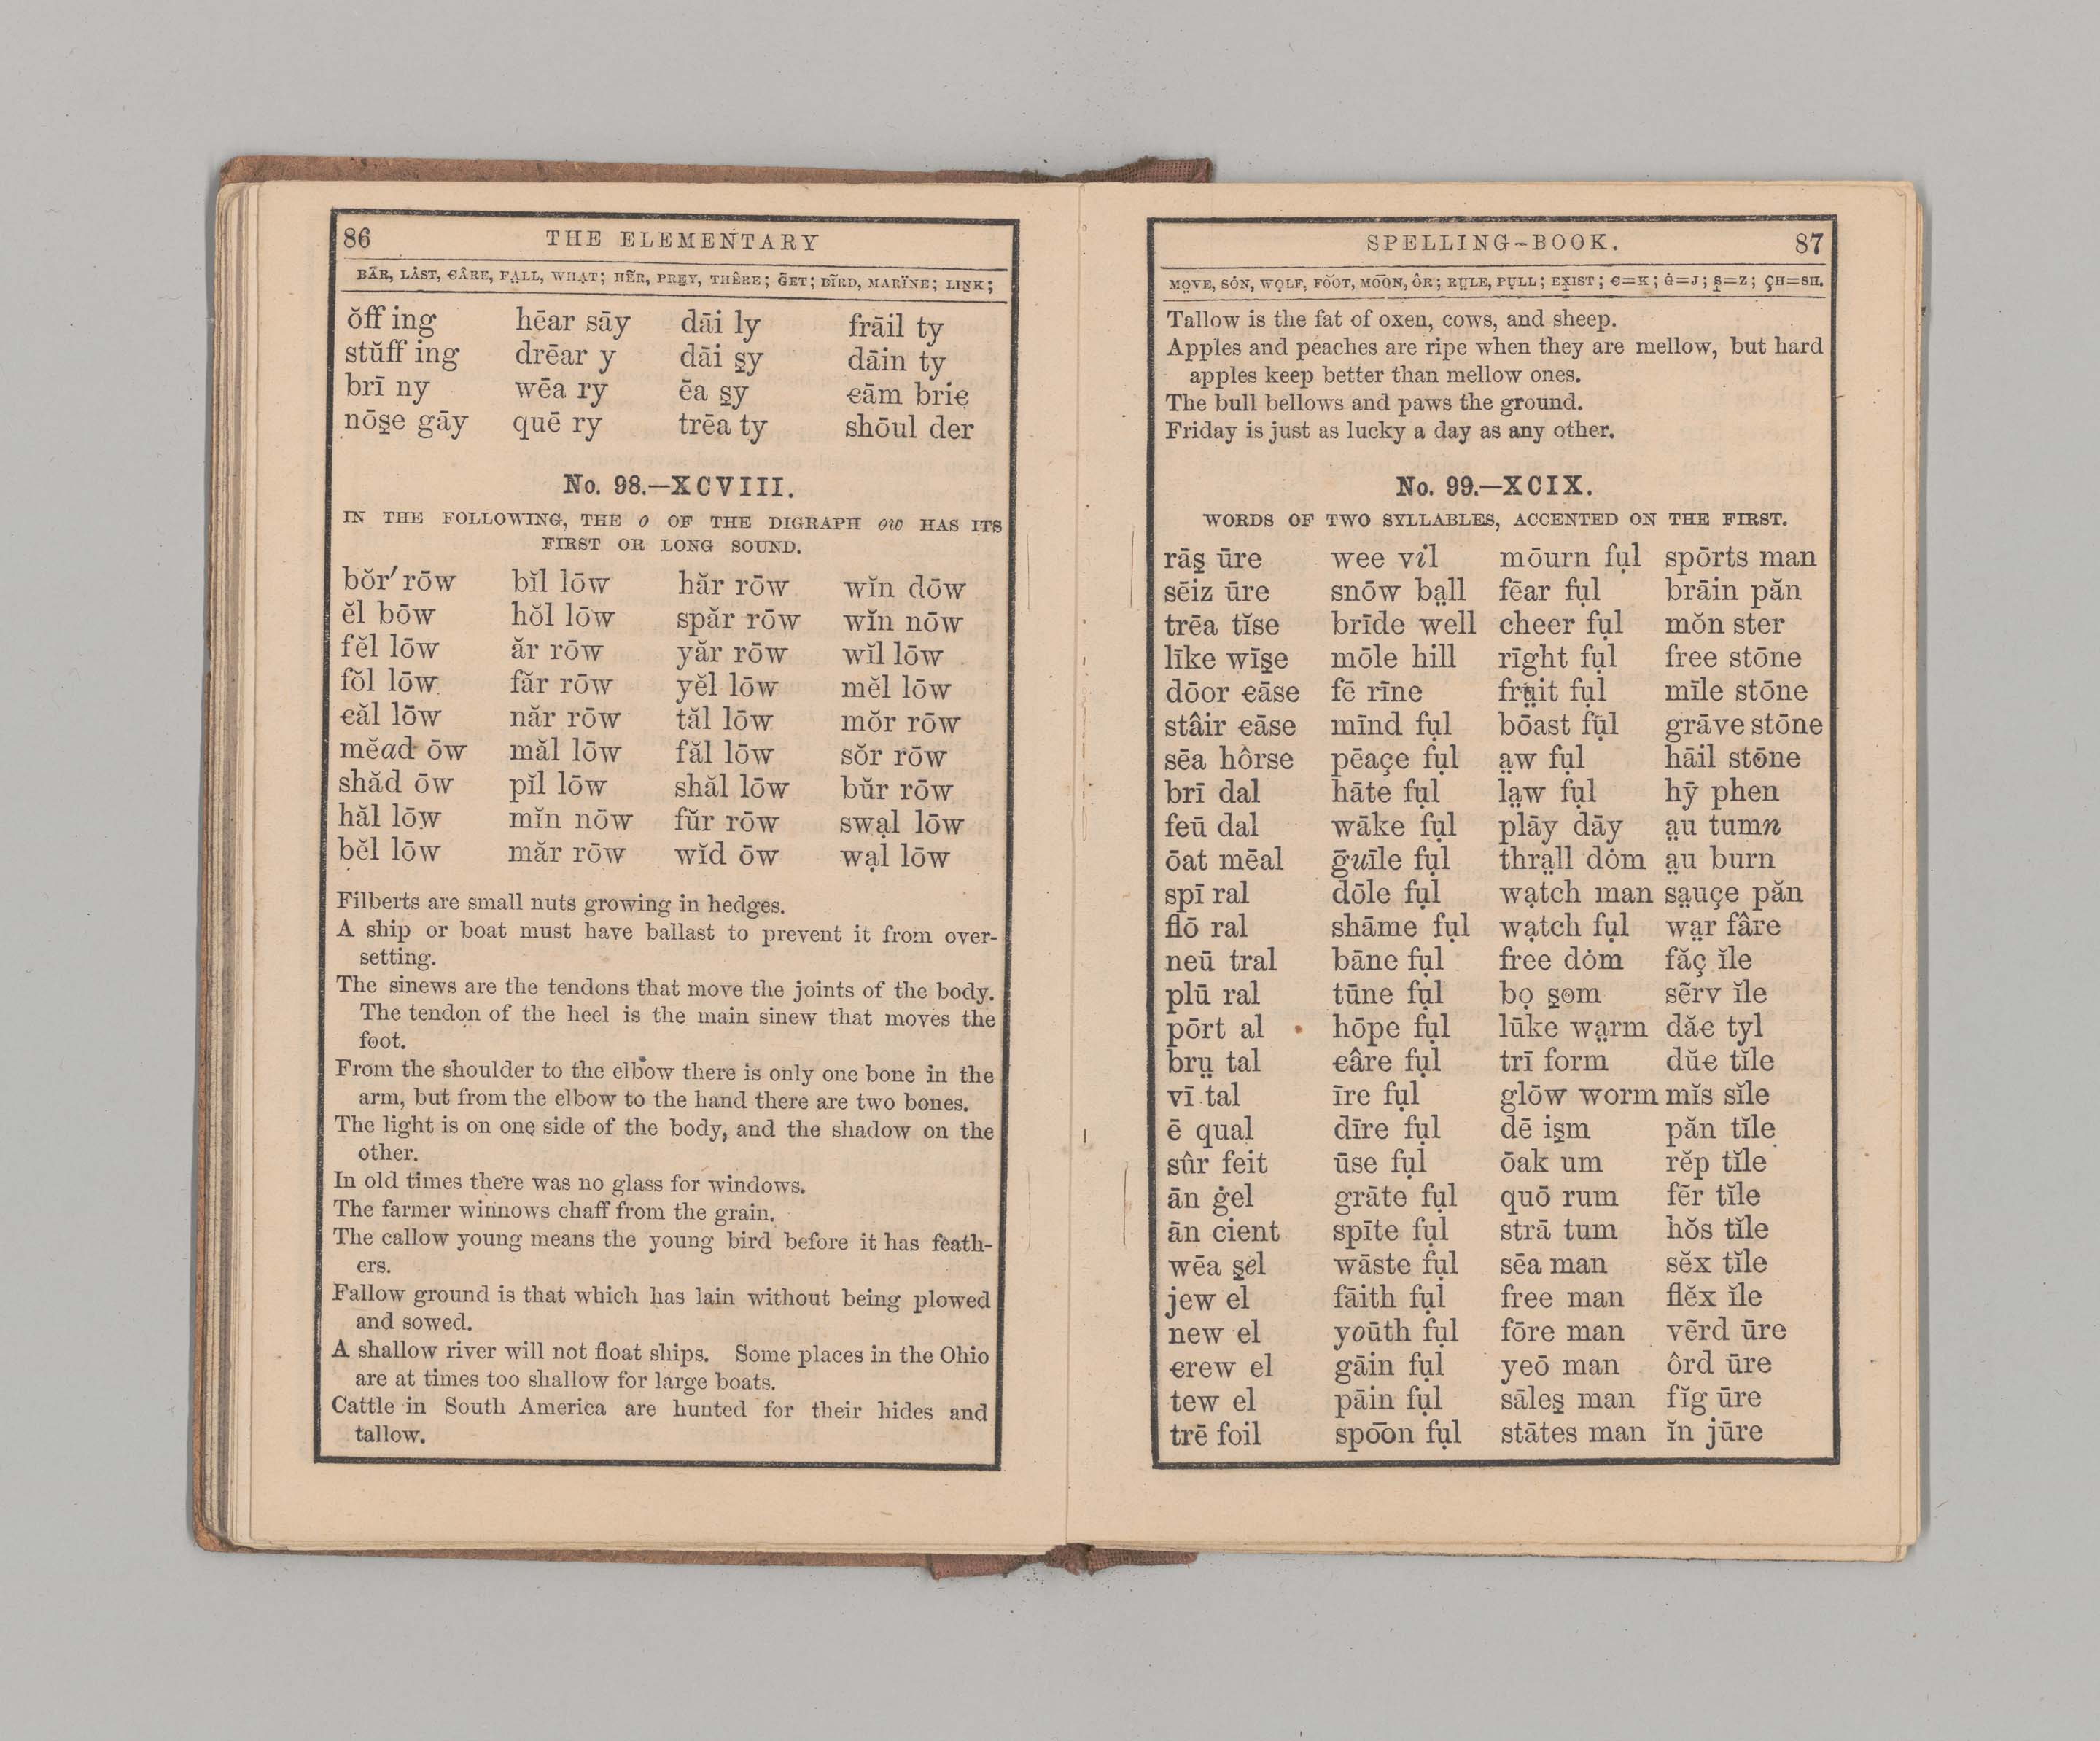 86 THE ELEMENTARY
BÄR, LȦST, ꞒÂRE, FA̤LL, WHẠT; HẼR, PRE̱Y, THÊRE; ḠET; BĨRD, MARÏNE; LIṈK;
ŏff ing hēar sāy dāi ly frāil ty
stŭff ing drēar y dāi s̱y dāin ty
brī ny wēa ry ēa s̱y ꞓām brie
nōs̱e gāy quē ry trēa ty shōul der
No. 98.—XCVIII.
IN THE FOLLOWING, THE o OF THE DIGRAPH ow HAS ITS
FIRST OR LONG SOUND.
bŏr′ rōw bĭl lōw hăr rōw wĭn dōw
ĕl bōw hŏl lōw spăr rōw wĭn nōw
fĕl lōw ăr rōw yăr rōw wĭl lōw
fŏl lōw făr rōw yĕl lōw mĕl lōw
ꞓăl lōw năr rōw tăl lōw mŏr rōw
mĕad ōw măl lōw făl lōw sŏr rōw
shăd ōw pĭl lōw shăl lōw bŭr rōw
hăl lōw mĭn nōw fŭr rōw swạl lōw
bĕl lōw măr rōw wĭd ōw wạl lōw
Filberts are small nuts growing in hedges.
A ship or boat must have ballast to prevent it from over-
setting.
The sinews are the tendons that move the joints of the body.
The tendon of the heel is the main sinew that moves the
foot.
From the shoulder to the elbow there is only one bone in the
arm, but from the elbow to the hand there are two bones.
The light is on one side of the body, and the shadow on the
other.
In old times there was no glass for windows.
The farmer winnows chaff from the grain.
The callow young means the young bird before it has feath-
ers.
Fallow ground is that which has lain without being plowed
and sowed.
A shallow river will not float ships. Some places in the Ohio
are at times too shallow for large boats.
Cattle in South America are hunted for their hides and
tallow.
SPELLING-BOOK. 87
MO̤VE, SȮN, WỌLF, FO͝OT, MO͞ON, ÔR; RṲLE, PỤLL; EX̱IST; Ꞓ=K; Ġ=J; S̱=Z; ÇH=SH.
Tallow is the fat of oxen, cows, and sheep.
Apples and peaches are ripe when they are mellow, but hard
apples keep better than mellow ones.
The bull bellows and paws the ground.
Friday is just as lucky a day as any other.
No. 99.—XCIX.
WORDS OF TWO SYLLABLES, ACCENTED ON THE FIRST.
rās̱ ūre wee vil mōurn fụl spōrts man
sēiz ūre snōw ba̤ll fēar fụl brāin păn
trēa tĭse brīde well cheer fụl mŏn ster
līke wīs̱e mōle hill rīght fụl free stōne
dōor ꞓāse fē rīne frṳit fụl mīle stōne
stâir ꞓāse mīnd fụl bōast fụl grāve stōne
sēa hôrse pēaçe fụl a̤w fụl hāil stōne
brī dal hāte fụl la̤w fụl hȳ phen
feū dal wāke fụl plāy dāy a̤u tumn
ōat mēal ḡuīle fụl thra̤ll dȯm a̤u burn
spī ral dōle fụl wạtch man sa̤uçe păn
flō ral shāme fụl wạtch fụl wa̤r fâre
neū tral bāne fụl free dȯm făç ĭle
plū ral tūne fụl bọ s̱om sẽrv ĭle
pōrt al hōpe fụl lūke wa̤rm dăꞓ tyl
brṳ tal ꞓâre fụl trī form dŭꞓ tĭle
vī tal īre fụl glōw worm mĭs sĭle
ē qual dīre fụl dē is̱m păn tĭle
sûr feit ūse fụl ōak um rĕp tĭle
ān ġel grāte fụl quō rum fẽr tĭle
ān cient spīte fụl strā tum hŏs tĭle
wēa s̱el wāste fụl sēa man sĕx tĭle
jew el fāith fụl free man flĕx ĭle
new el yoūth fụl fōre man vẽrd ūre
ꞓrew el gāin fụl yeō man ôrd ūre
tew el pāin fụl sāles̱ man fĭg ūre
trē foil spo͞on fụl stātes man ĭn jūre